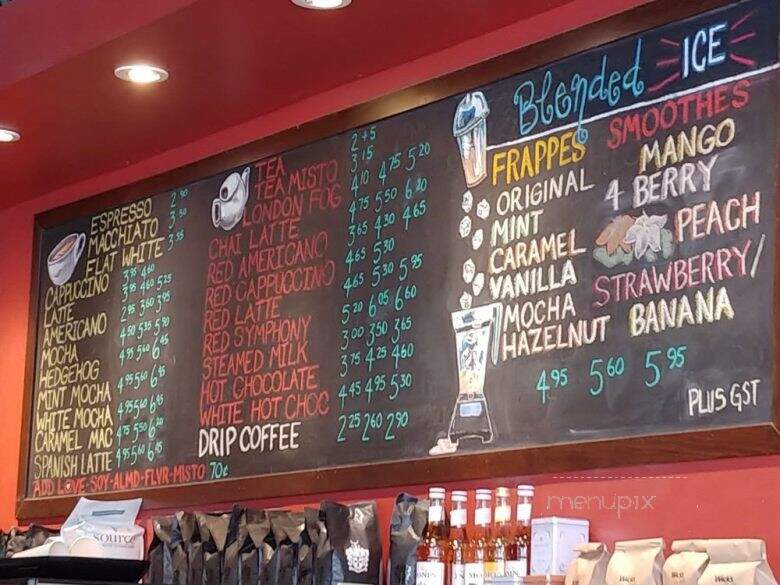 ESPRESSO 2.90
MACCHIATO 3.50
FLAT WHITE 3.95
CAPPUCCINO 3.95 4.60
LATTE 3.95 4.60 5.25
AMERICANO 2.95 3.60 3.95
MOCHA 4.50 5.35 5.90
HEDGEHOG 4.95 5.60 6.45
MINT MOCHA 4.95 5.60 6.45
WHITE MOCHA 4.95 5.60 6.45
CARAMEL MAC 4.75 5.50 6.20
SPANISH LATTE 4.95 5.60 6.45
ADD LOVE-SOY-ALMD-FLVR-MISTO 70¢
TEA 2.45
TEA MISTO 3.15
LONDON FOG 4.10 4.75 5.20
CHAI LATTE 4.75 5.50 6.20
RED AMERICANO 3.65 4.30 4.65
RED CAPPUCCINO 4.65 5.30
RED LATTE 4.65 5.30 5.95
RED SYMPHONY 5.20 6.05 6.60
STEAMED MILK 3.00 3.50 3.65
HOT CHOCOLATE 3.75 4.25 4.60
WHITE HOT CHOC 4.45 4.95 5.30
DRIP COFFEE 2.25 2.60 2.90
Blended ICE
FRAPPES
ORIGINAL
MINT
CARAMEL
VANILLA
MOCHA
HAZELNUT
SMOOTHES
MANGO
4 BERRY
PEACH
STRAWBERRY/
BANANA
4.95 5.60 5.95
PLUS GST
menupix
source